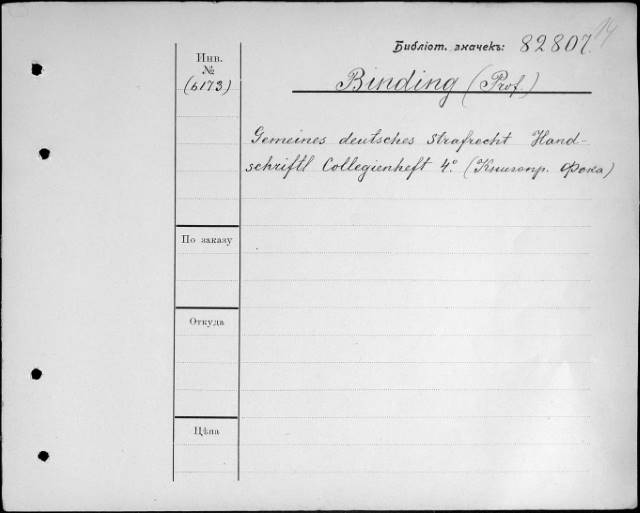 14
Библіот. значекъ: 82807.
Инв.
№
(6173)
Binding (Prof.)
Gemeines deutsches Strafrecht Hand-
schriftl Collegienheft 4º. (Книгопр. Фока)
По заказу
Откуда
Цѣна